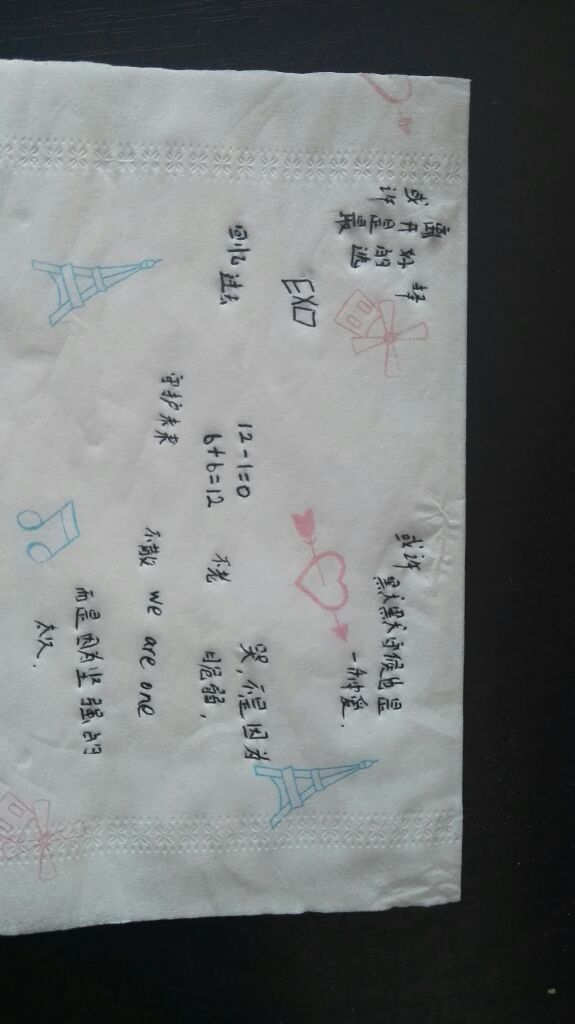 或许
离开是最
好的选
择
或许
默默守候也是
一种爱.
EXO
回忆过去
12-1=0
6+6=12
守护未来
不老
不散 we are one
哭,不是因为
脆弱,
而是因为坚强的
太久.